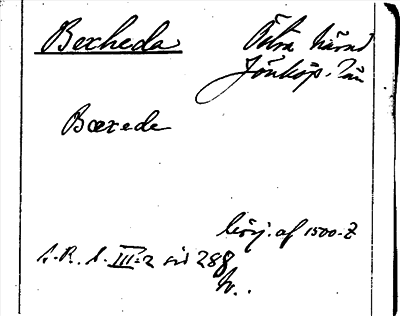 Bexheda Östra härad
Jönköp. län
Bœxede
börj. af 1500-t
S.R.S. III:2 sid 288